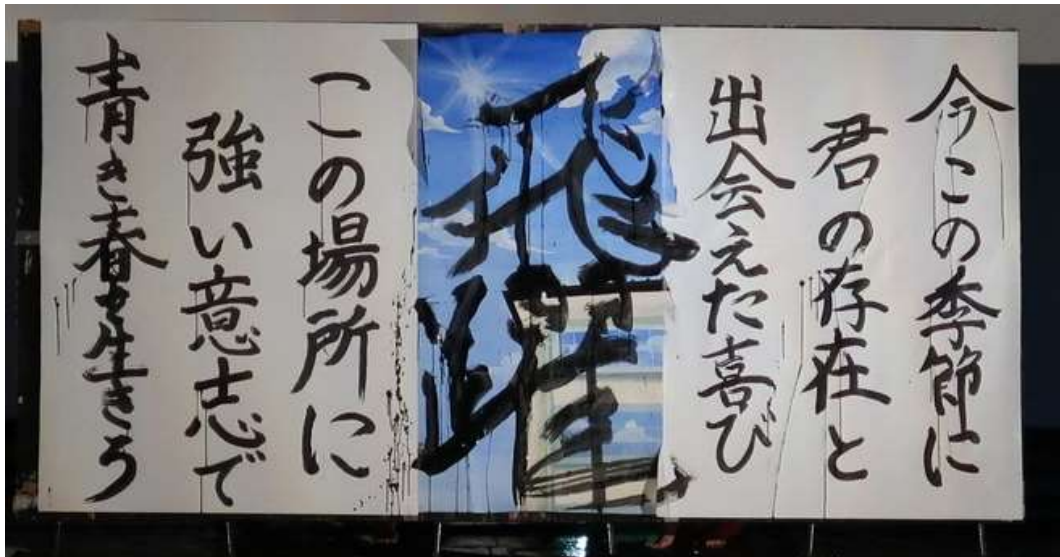 今この季節に
君の存在と
出会えた喜び
飛躍
この場所に
強い意志で
青き春を生きろ